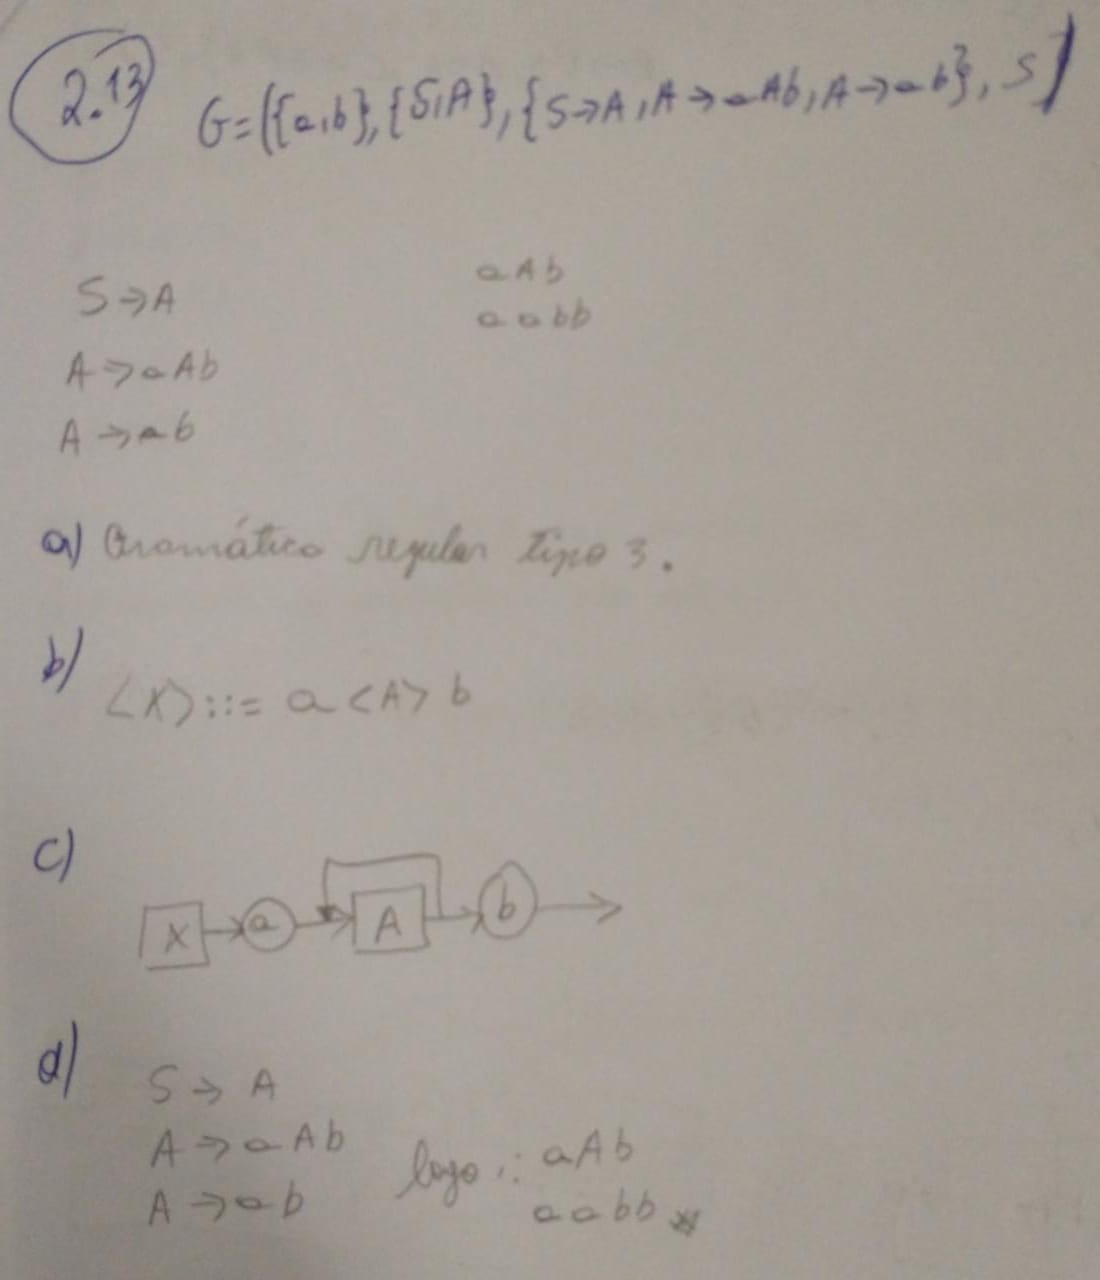 2.13 G=({a,b},{S,A},{S→A,A→aAb,A→ab},S)
S→A
A→aAb
A→ab
aAb
aabb
a) Gramática regular tipo 3.
b) <X>::= a<A>b
c)
X a A b
d)
S→A
A→aAb
A→ab
logo ∴ aAb
aabb